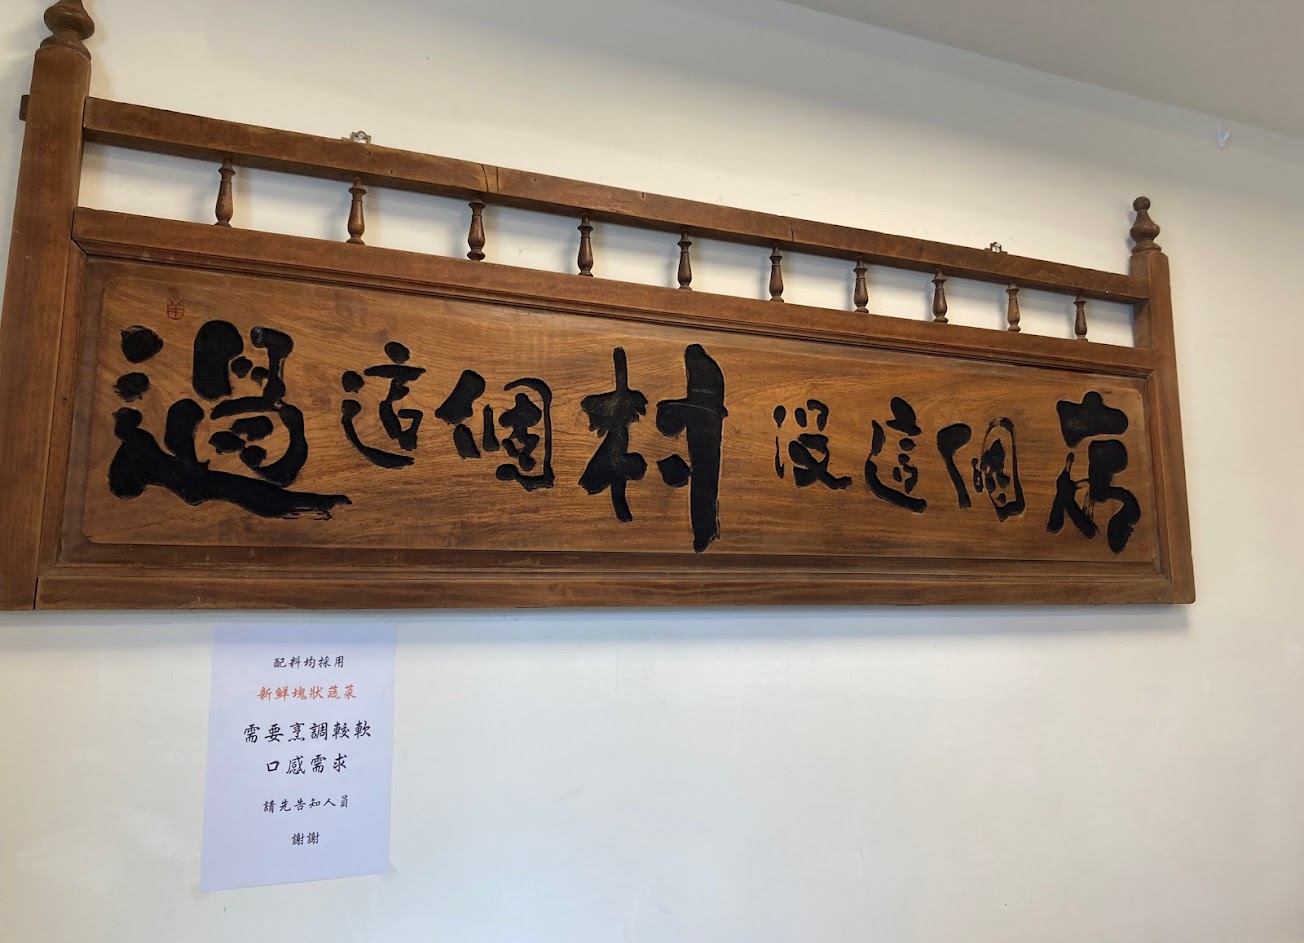 過這個村沒這個店
配料均採用
新鮮塊狀蔬菜
需要烹調較軟
口感需求
請先告知人員
謝謝